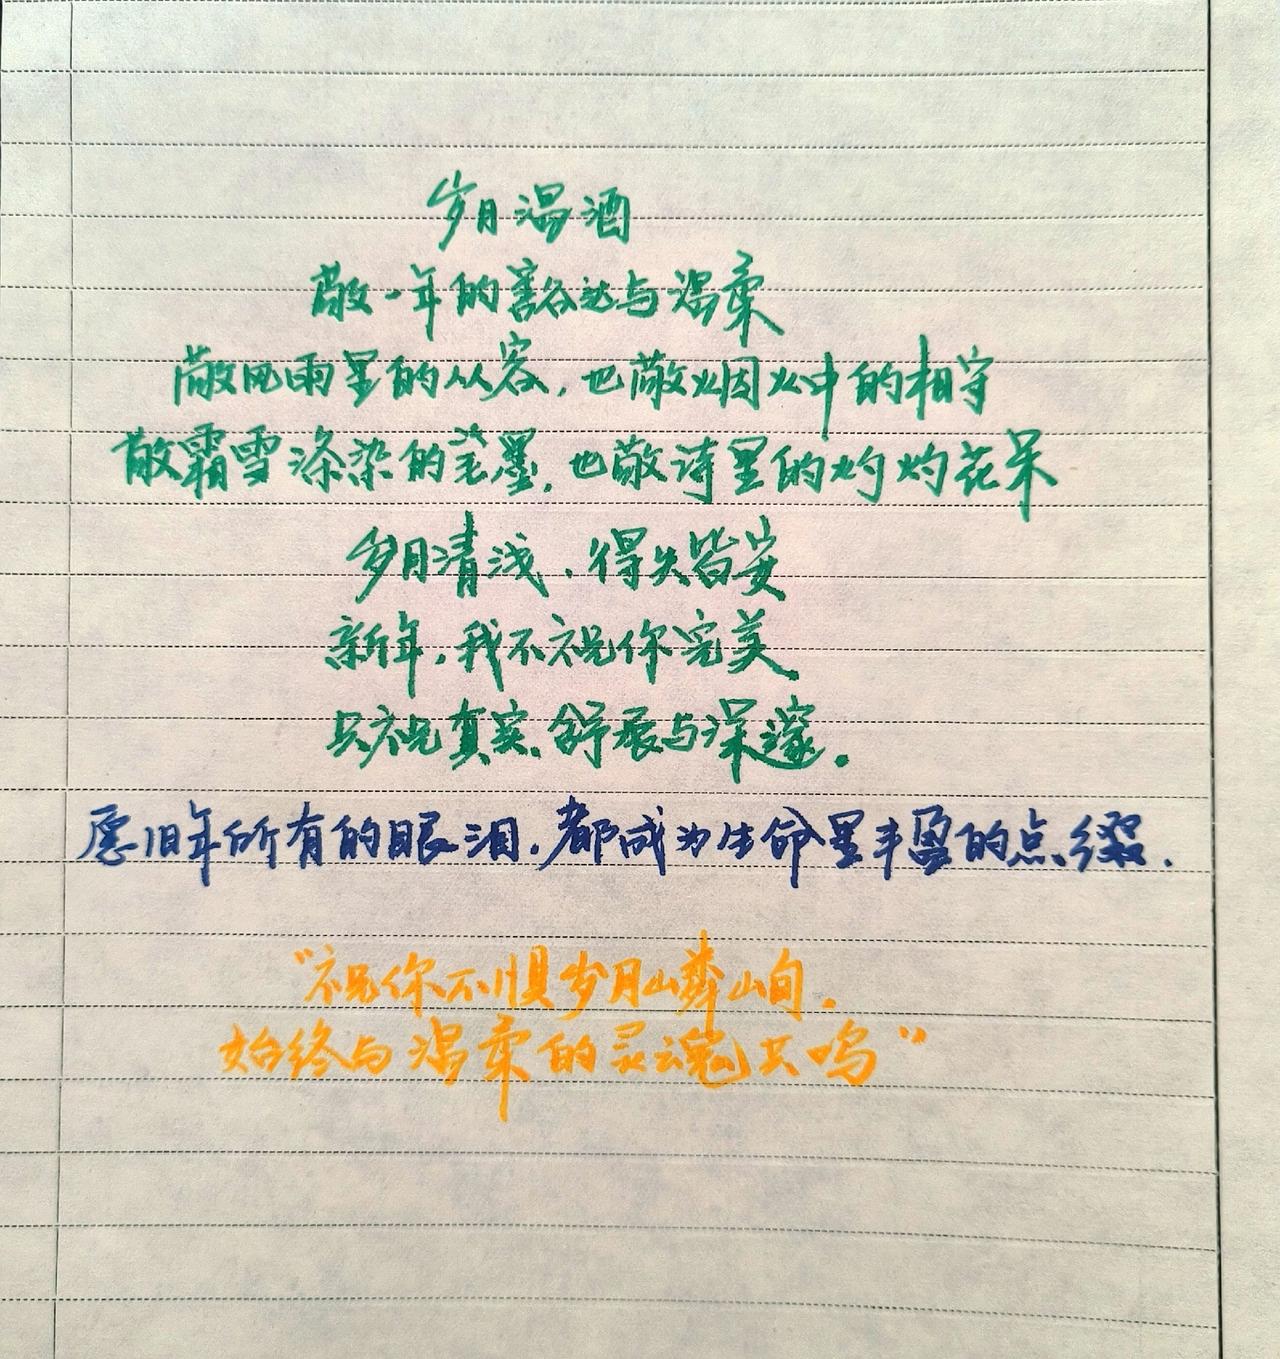 岁月温酒
敬一年的豁达与温柔
敬风雨里的从容，也敬烟火中的相守
敬霜雪涤染的笔墨，也敬诗里的灼灼花朵
岁月清浅，得失皆安
新年，我不祝你完美
只祝真实、舒展与深邃。
愿旧年所有的眼泪，都成为生命里丰盈的点缀.
“祝你不惧岁月嶙峋，
始终与温柔的灵魂共鸣”